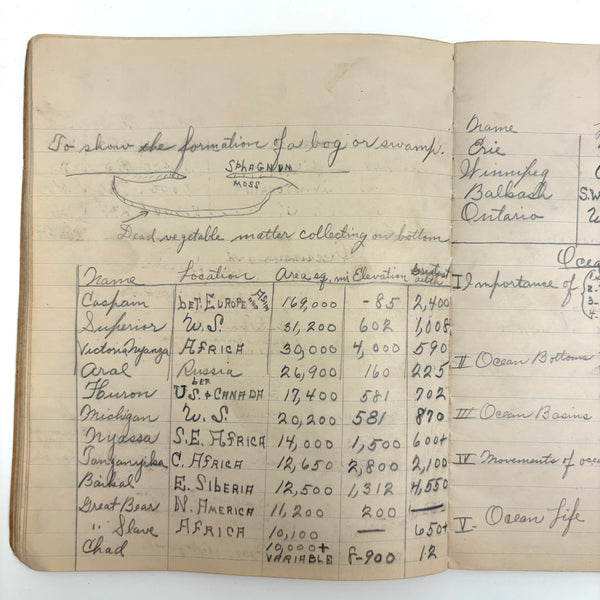 To show the formation of a bog or swamp.
SPHAGNUM
MOSS
Dead vegetable matter collecting on bottom
Name Location Area sq. mi Elevation Greatest depth
Caspain bet. EUROPE and Asia 169,000 -85 2,400
Superior U.S. 31,200 602 1,008
Victoria Nyanza AFRICA 30,000 4,000 590
Aral Russia 26,900 160 225
Huron bet U.S. & CANADA 17,400 581 702
Michigan U.S. 20,200 581 870
Nyassa S.E. AFRICA 14,000 1,500 600+
Tanganyika C. AFRICA 12,650 2,800 2,100
Baikal E. SIBERIA 12,500 1,312 4,550
Great Bear N. AMERICA 11,200 200 —
" Slave AFRICA 10,100 — 650+
Chad 10,000+ VARIABLE 8-900 12
Name
Erie
Winnipeg
Balkash S.W.
Ontario
Ocea
I Importance of
1
2.
3-
4-
II Ocean Bottoms
III Ocean Basins
IV Movements of ocea
V- Ocean Life